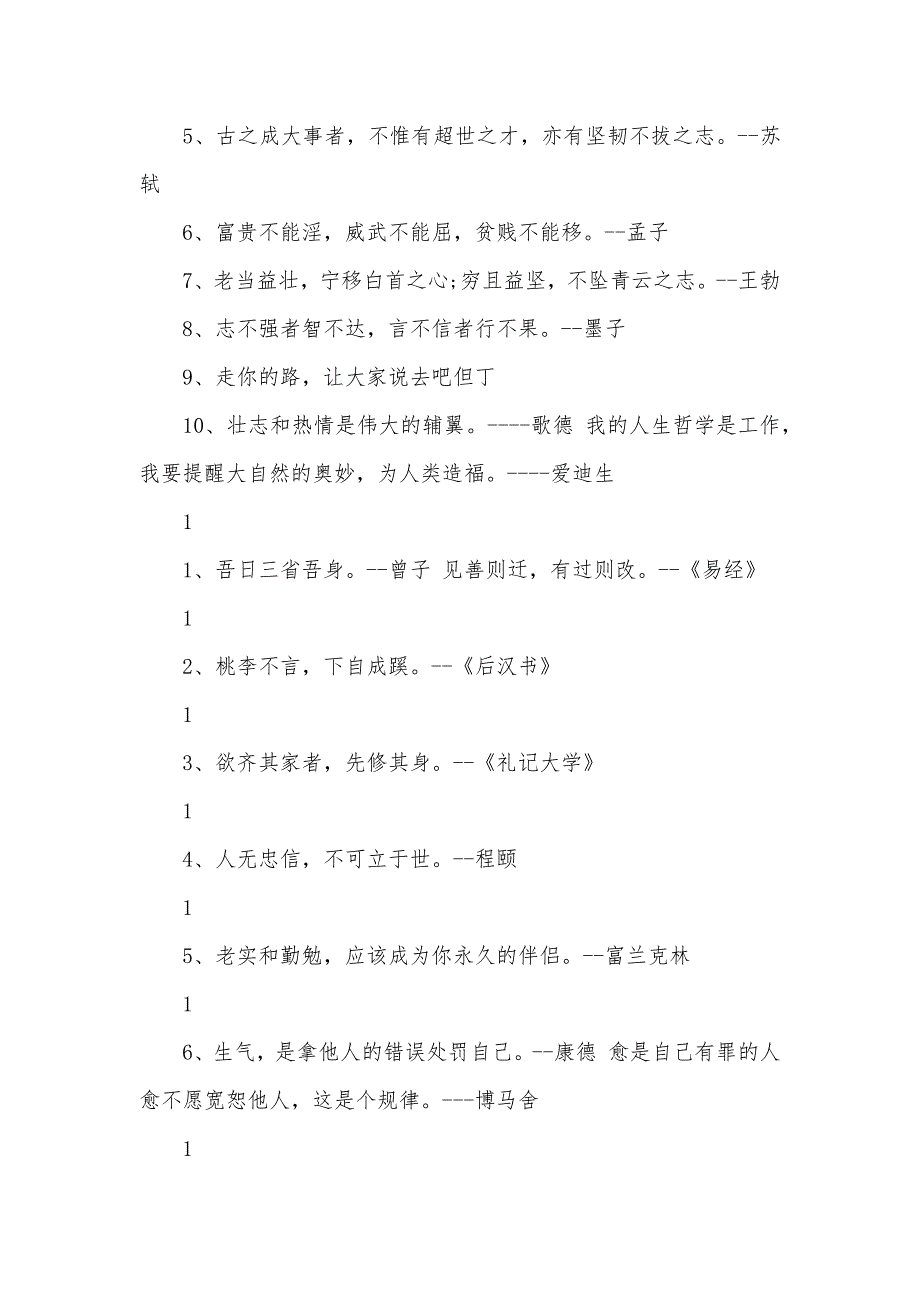 5、古之成大事者，不惟有超世之才，亦有坚韧不拔之志。--苏
轼
6、富贵不能淫，威武不能屈，贫贱不能移。--孟子
7、老当益壮，宁移白首之心;穷且益坚，不坠青云之志。--王勃
8、志不强者智不达，言不信者行不果。--墨子
9、走你的路，让大家说去吧但丁
10、壮志和热情是伟大的辅翼。----歌德 我的人生哲学是工作，
我要提醒大自然的奥妙，为人类造福。----爱迪生
1
1、吾日三省吾身。--曾子 见善则迁，有过则改。--《易经》
1
2、桃李不言，下自成蹊。--《后汉书》
1
3、欲齐其家者，先修其身。--《礼记大学》
1
4、人无忠信，不可立于世。--程颐
1
5、老实和勤勉，应该成为你永久的伴侣。--富兰克林
1
6、生气，是拿他人的错误处罚自己。--康德 愈是自己有罪的人
愈不愿宽恕他人，这是个规律。---博马舍
1